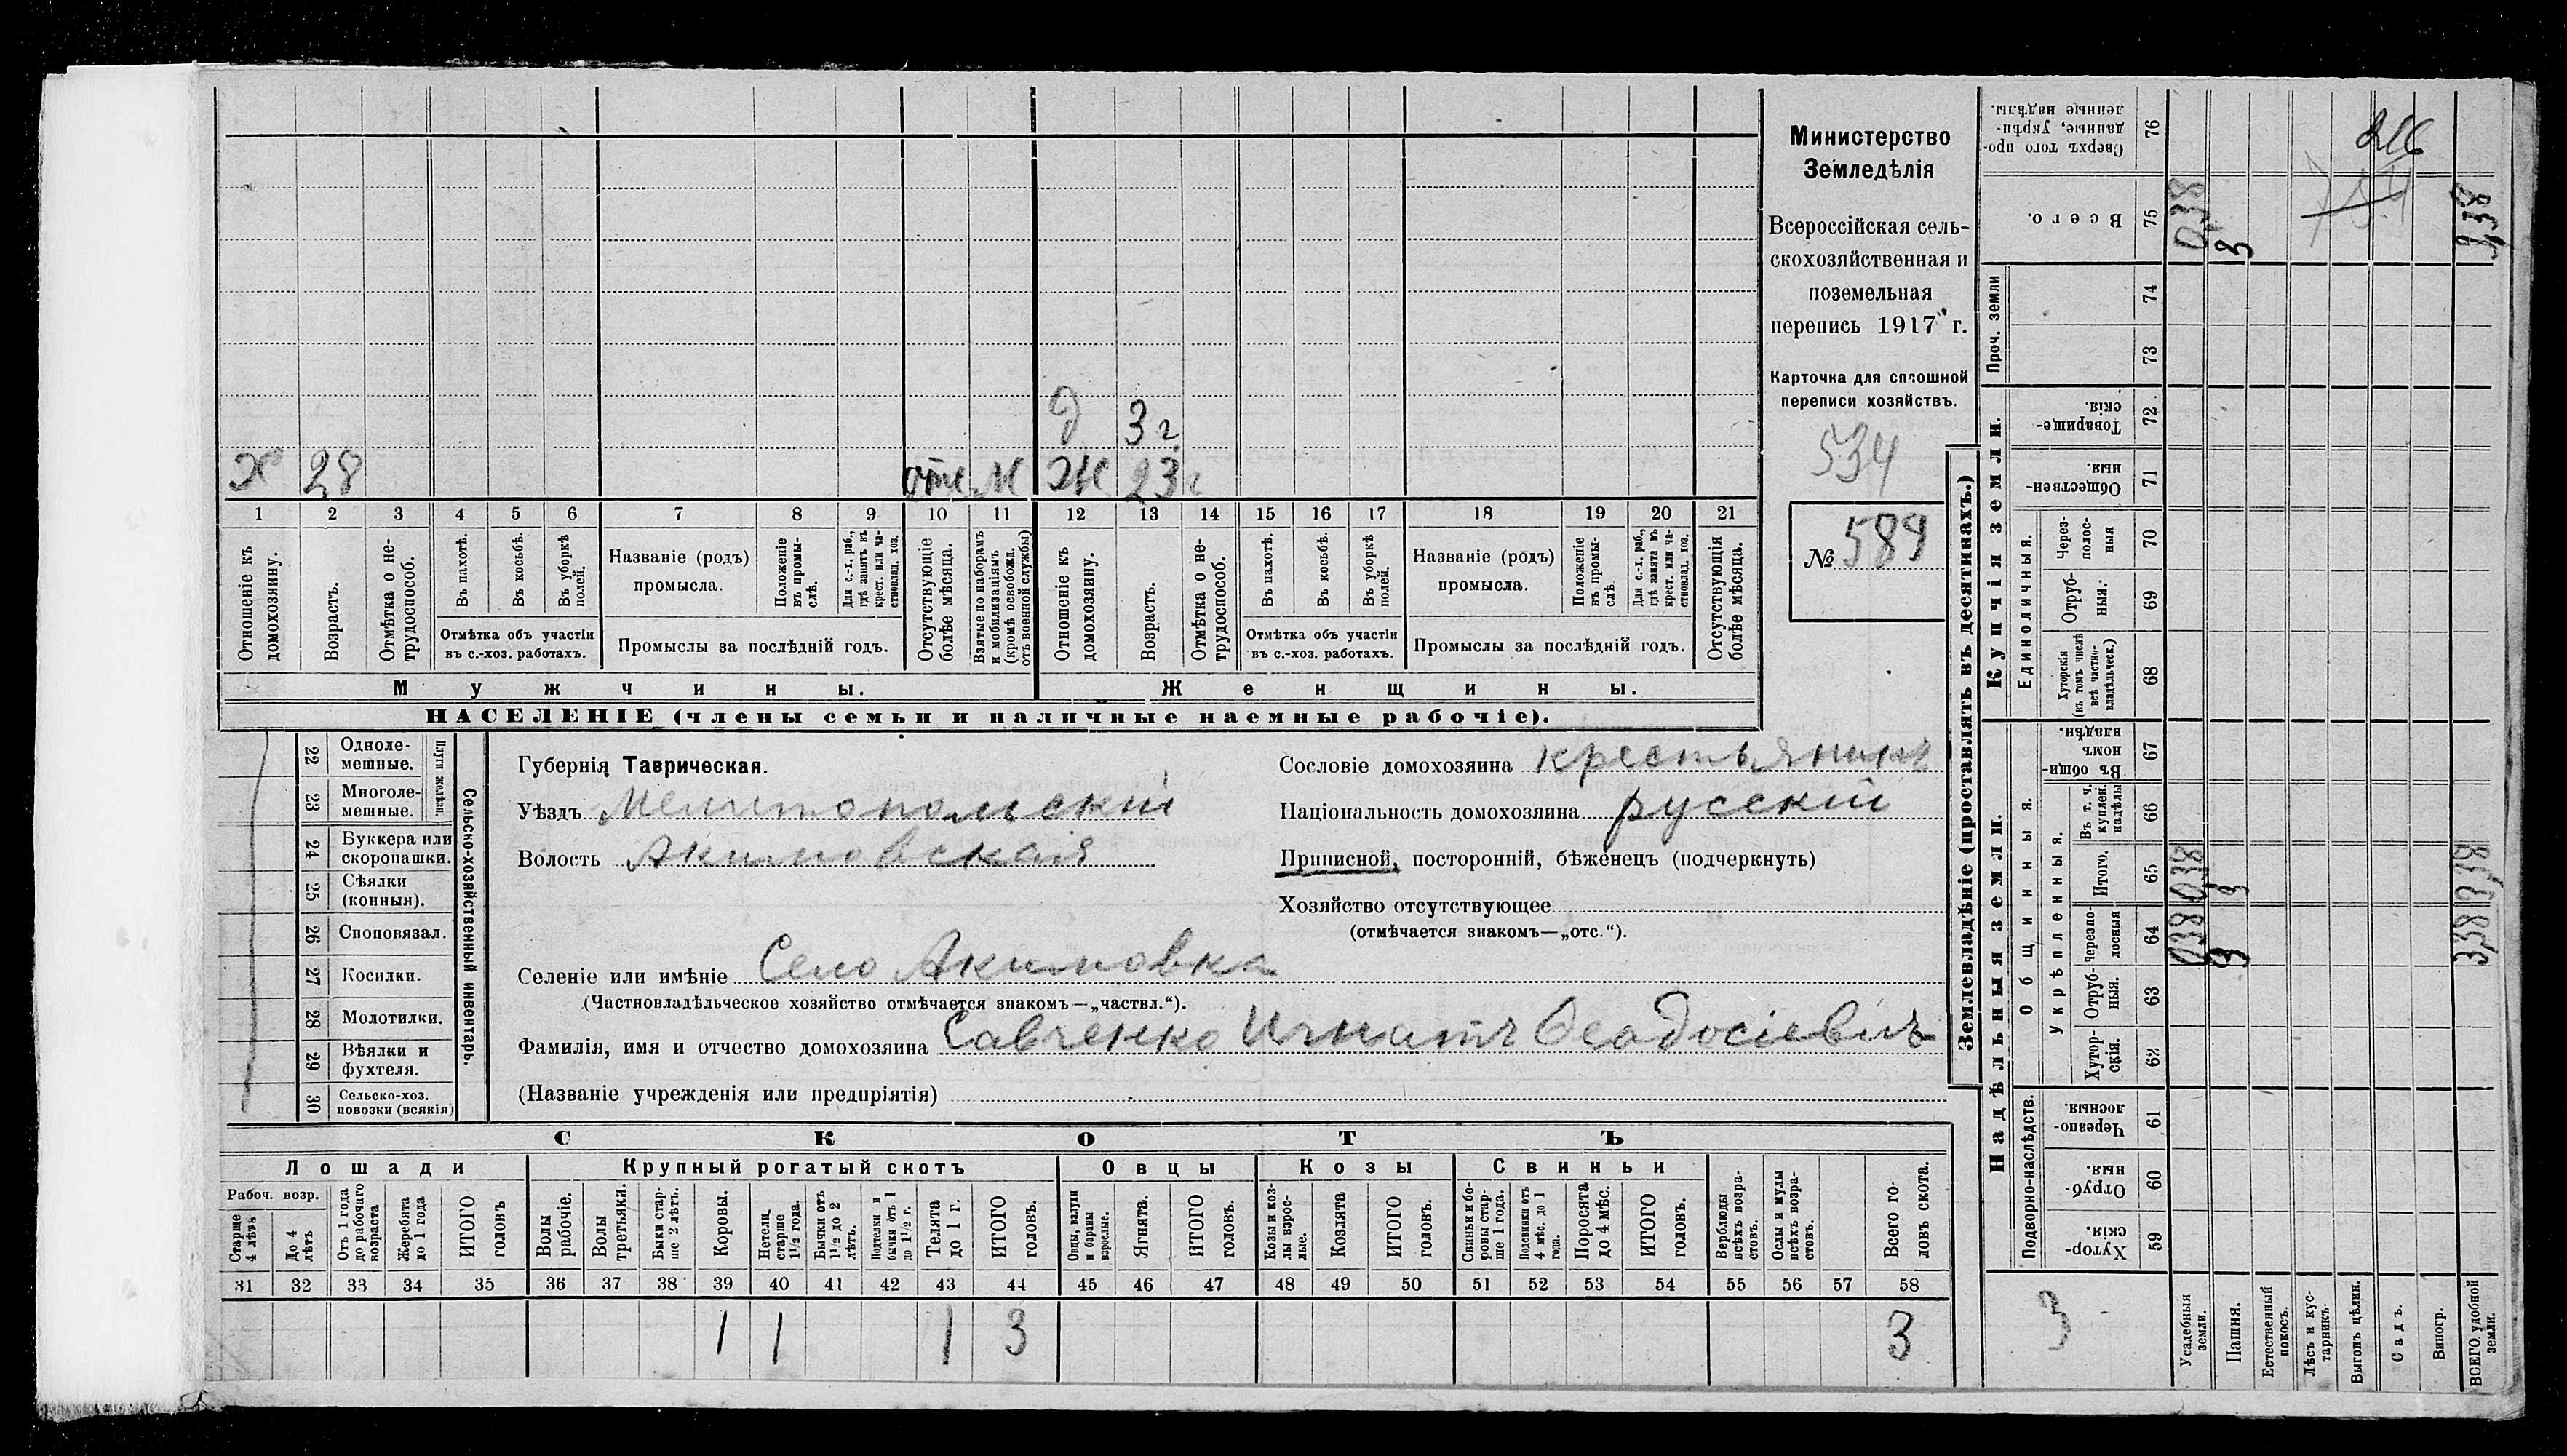 Министерство
Земледѣлія
Всероссійская сель-
скохозяйственная и
поземельная
перепись 1917 г.
Карточка для сплошной
переписи хозяйствъ.
534
№ 589
Д 3 г
Х 28 отс. М Ж 23 г
1 2 3 4 5 6 7 8 9 10 11 12 13 14 15 16 17 18 19 20 21
Отношеніе къ домохозяину.
Возрастъ.
Отмѣтка о не-трудоспособ.
Въ пахотѣ.
Въ косьбѣ.
Въ уборкѣ полей.
Отмѣтка объ участіи
въ с.-хоз. работахъ.
Названіе (родъ)
промысла.
Положеніе въ промы-слѣ.
Для с.-х. раб., гдѣ занятъ въ крест. или ча-стновлад. хоз.
Промыслы за послѣдній годъ.
Отсутствующіе болѣе мѣсяца.
Взятые по наборамъ и мобилизаціямъ (кромѣ освобожд. отъ военной службы)
Отношеніе къ домохозяину.
Возрастъ.
Отмѣтка о не-трудоспособ.
Въ пахотѣ.
Въ косьбѣ.
Въ уборкѣ полей.
Отмѣтка объ участіи
въ с.-хоз. работахъ.
Названіе (родъ)
промысла.
Положеніе въ промы-слѣ.
Для с.-х. раб., гдѣ занята въ крест. или ча-стновлад. хоз.
Промыслы за послѣдній годъ.
Отсутствующія болѣе мѣсяца.
Мужчины. Женщины.
НАСЕЛЕНІЕ (члены семьи и наличные наемные рабочіе).
22 Одноле-мешные.
23 Многоле-мешные.
Плуги желѣзн.
24 Буккера или скоропашки.
25 Сѣялки (конныя).
26 Сноповязал.
27 Косилки.
28 Молотилки.
29 Вѣялки и фухтеля.
30 Сельско-хоз. повозки (всякія)
Сельско-хозяйственный инвентарь.
Губернія Таврическая.
Уѣздъ Мелитопольскій
Волость Акимовская
Сословіе домохозяина крестьянинъ
Національность домохозяина русскій
Приписной, посторонній, бѣженецъ (подчеркнуть)
Хозяйство отсутствующее
(отмѣчается знакомъ—„отс.“).
Селеніе или имѣніе Село Акимовка
(Частновладѣльческое хозяйство отмѣчается знакомъ—„частвл.“).
Фамилія, имя и отчество домохозяина Савченко Игнатъ Ѳеодосіевичъ
(Названіе учрежденія или предпріятія)
СКОТЪ
Лошади Крупный рогатый скотъ Овцы Козы Свиньи
Рабоч. возр.
Старше 4 лѣтъ
До 4 лѣтъ
Отъ 1 года до рабочаго возраста
Жеребята до 1 года
ИТОГО головъ
Волы рабочіе.
Волы третьяки.
Быки стар-ше 2 лѣтъ.
Коровы.
Нетели старше 1 1/2 года.
Бычки отъ 1 1/2 до 2 лѣтъ.
Подтелки и бычки отъ 1 до 1 1/2 г.
Телята до 1 г.
ИТОГО головъ.
Овцы, валухи и бараны взрослые.
Ягнята.
ИТОГО головъ.
Козы и коз-лы взрос-лые.
Козлята
ИТОГО головъ.
Свиньи и бо-ровы стар-ше 1 года.
Подсвинки отъ 4 мѣс. до 1 года.
Поросята до 4 мѣс.
ИТОГО головъ.
Верблюды всѣхъ возра-стовъ.
Ослы и мулы всѣхъ возра-стовъ.
Всего го-ловъ скота.
31 32 33 34 35 36 37 38 39 40 41 42 43 44 45 46 47 48 49 50 51 52 53 54 55 56 57 58
1 1 1 3 3
Землевладѣніе (проставлять въ десятинахъ.)
Надѣльныя земли.
Подворно-наслѣдств.
Хутор-скія. 59
Отруб-ныя. 60
Черезпо-лосныя. 61
Общинныя.
Укрѣпленныя.
Хутор-скія. 62
Отруб-ныя. 63
черезпо-лосныя 64
Итого. 65
Въ т. ч. куплен. надѣлы 66
Въ общин-номъ владѣн. 67
Купчія земли.
Единоличныя.
Хуторскія (въ томъ числѣ всѣ частно-владѣльческ.) 68
Отруб-ныя. 69
Через-полос-ныя 70
Обществен-ныя. 71
Товарище-скія. 72
Проч. земли
73
74
Всего. 75
Сверхъ того про-данные, укрѣп-ленные надѣлы. 76
3
Усадебныя земли. 038 038 038
Пашня. 3 3 3
Естественный покосъ.
Лѣсъ и кус-тарникъ.
Выгонъ цѣлин.
Садъ.
Виногр.
ВСЕГО удобной земли. 3,38 3,38 3,38